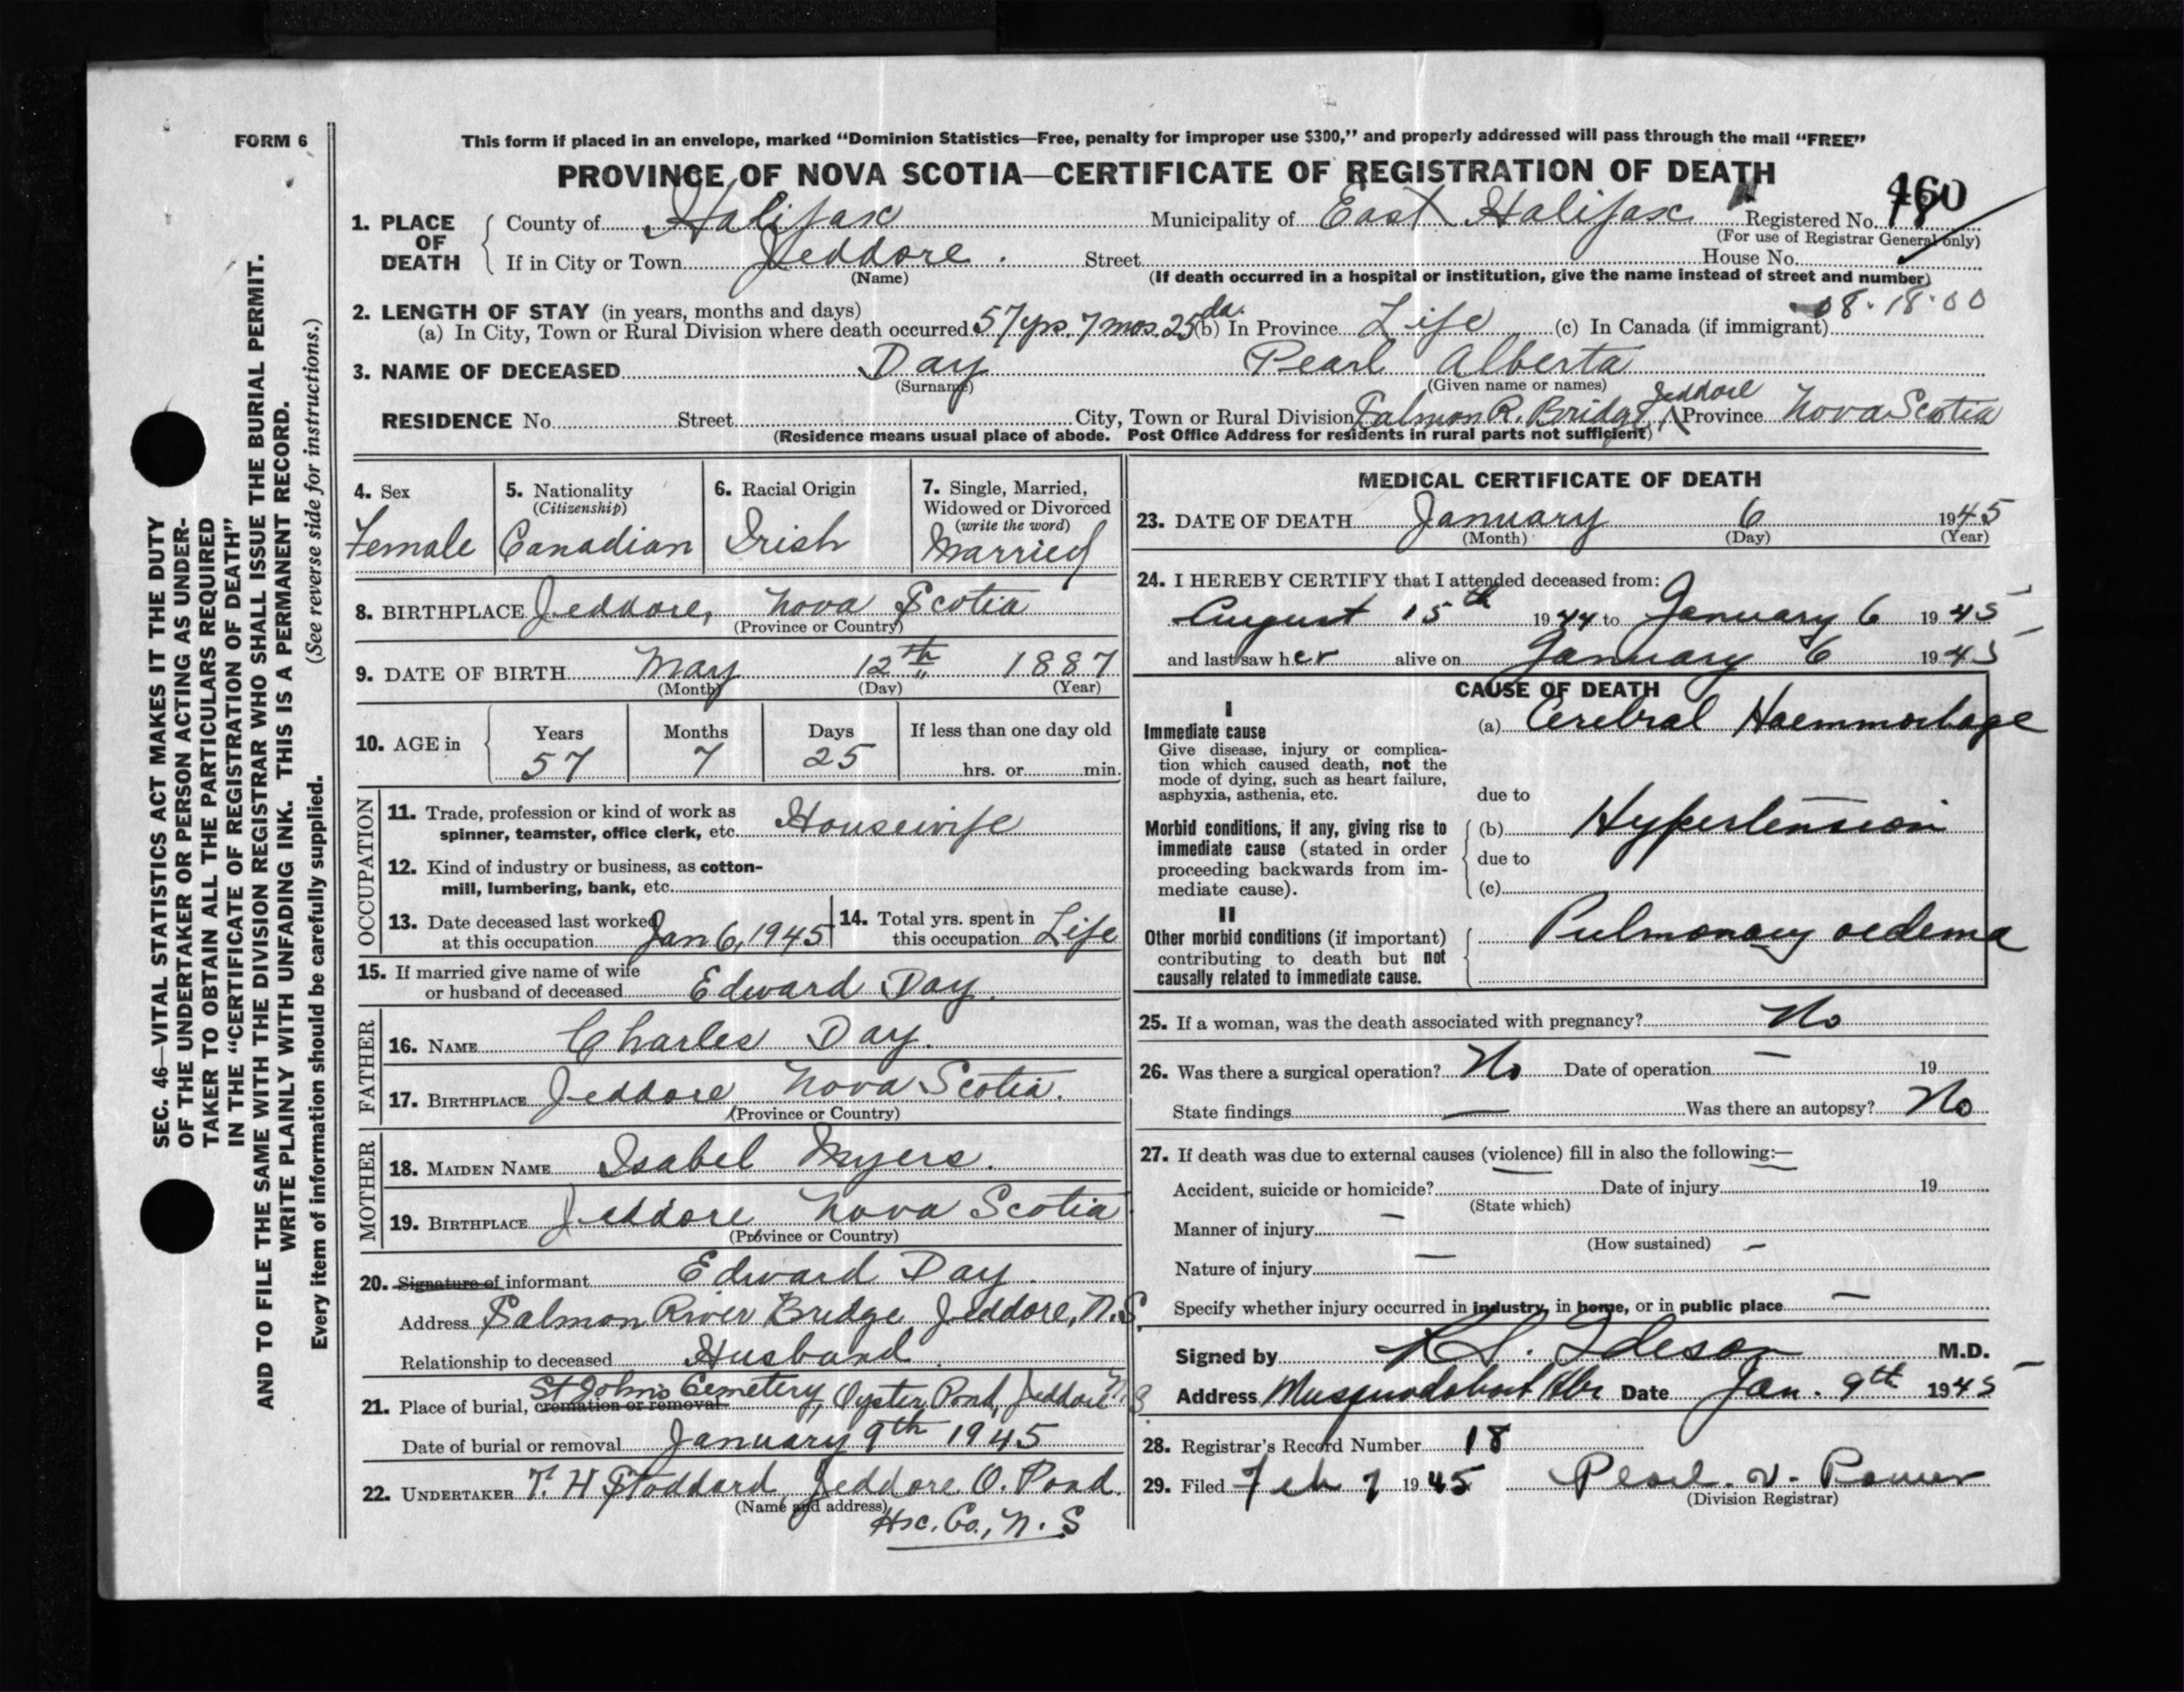 FORM 6
This form if placed in an envelope, marked “Dominion Statistics—Free, penalty for improper use $300,” and properly addressed will pass through the mail “FREE”
PROVINCE OF NOVA SCOTIA—CERTIFICATE OF REGISTRATION OF DEATH
460
1. PLACE OF DEATH County of Halifax Municipality of East Halifax Registered No. 18
(For use of Registrar General only)
If in City or Town Jeddore. Street House No.
(Name) (If death occurred in a hospital or institution, give the name instead of street and number)
08·18·00
2. LENGTH OF STAY (in years, months and days)
(a) In City, Town or Rural Division where death occurred 57 yrs. 7 mos. 25 da. (b) In Province Life (c) In Canada (if immigrant)
3. NAME OF DECEASED Day Pearl Alberta
(Surname) (Given name or names)
RESIDENCE No. Street City, Town or Rural Division Salmon R. Bridge, Jeddore Province Nova Scotia
(Residence means usual place of abode. Post Office Address for residents in rural parts not sufficient)
4. Sex Female
5. Nationality (Citizenship) Canadian
6. Racial Origin Irish
7. Single, Married, Widowed or Divorced (write the word) Married
8. BIRTHPLACE Jeddore, Nova Scotia
(Province or Country)
9. DATE OF BIRTH May 12th 1887
(Month) (Day) (Year)
10. AGE in Years Months Days If less than one day old
57 7 25 hrs. or min.
OCCUPATION
11. Trade, profession or kind of work as
spinner, teamster, office clerk, etc. Housewife
12. Kind of industry or business, as cotton-
mill, lumbering, bank, etc.
13. Date deceased last worked
at this occupation Jan 6, 1945
14. Total yrs. spent in
this occupation Life
15. If married give name of wife
or husband of deceased Edward Day.
FATHER
16. NAME Charles Day.
17. BIRTHPLACE Jeddore Nova Scotia.
(Province or Country)
MOTHER
18. MAIDEN NAME Isabel Myers.
19. BIRTHPLACE Jeddore Nova Scotia
(Province or Country)
20. Signature of informant Edward Day.
Address Salmon River Bridge Jeddore, N.S.
Relationship to deceased Husband.
21. Place of burial, cremation or removal St John's Cemetery, Oyster Pond, Jeddore N.S
Date of burial or removal January 9th 1945
22. UNDERTAKER T. H Stoddard, Jeddore O. Pond.
(Name and address)
Hx. Co., N.S
MEDICAL CERTIFICATE OF DEATH
23. DATE OF DEATH January 6 1945
(Month) (Day) (Year)
24. I HEREBY CERTIFY that I attended deceased from:
August 15th 1944 to January 6 1945
and last saw her alive on January 6 1945
CAUSE OF DEATH
I
Immediate cause
Give disease, injury or complica-
tion which caused death, not the
mode of dying, such as heart failure,
asphyxia, asthenia, etc.
(a) Cerebral Haemmorhage
due to
Morbid conditions, if any, giving rise to
immediate cause (stated in order
proceeding backwards from im-
mediate cause).
(b) Hypertension
due to
(c)
II
Other morbid conditions (if important)
contributing to death but not
causally related to immediate cause.
Pulmonary oedema
25. If a woman, was the death associated with pregnancy? No
26. Was there a surgical operation? No Date of operation — 19
State findings — Was there an autopsy? No
27. If death was due to external causes (violence) fill in also the following:—
Accident, suicide or homicide? — Date of injury 19
(State which)
Manner of injury —
(How sustained) —
Nature of injury —
Specify whether injury occurred in industry, in home, or in public place —
Signed by Ideson M.D.
Address Musquodoboit Hbr Date Jan. 9th 1945
28. Registrar's Record Number 18
29. Filed Feb 7 1945 Pearl. V. Power
(Division Registrar)
SEC. 46—VITAL STATISTICS ACT MAKES IT THE DUTY
OF THE UNDERTAKER OR PERSON ACTING AS UNDER-
TAKER TO OBTAIN ALL THE PARTICULARS REQUIRED
IN THE “CERTIFICATE OF REGISTRATION OF DEATH”
AND TO FILE THE SAME WITH THE DIVISION REGISTRAR WHO SHALL ISSUE THE BURIAL PERMIT.
WRITE PLAINLY WITH UNFADING INK. THIS IS A PERMANENT RECORD.
Every item of information should be carefully supplied. (See reverse side for instructions.)